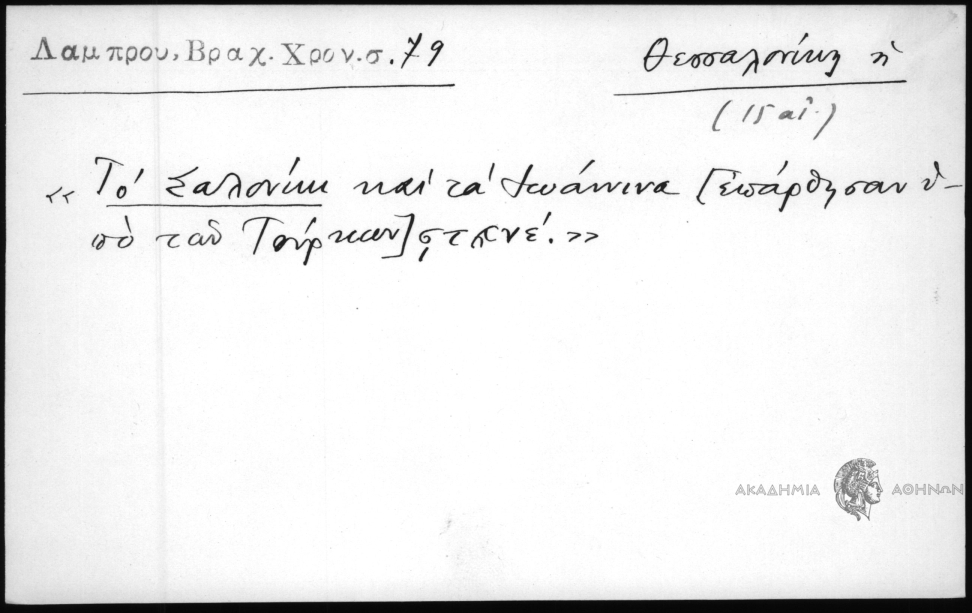 Λαμπρου, Βραχ. Χρον. σ. 79
Θεσσαλονίκη ἡ
(15 αἰ.)
«Τὸ Σαλονίκι καὶ τὰ Ἰωάννινα [ἐπάρθησαν ὑ-
πὸ τῶν Τούρκων] ϛτλνέ.»
ΑΚΑΔΗΜΙΑ ΑΘΗΝΩΝ